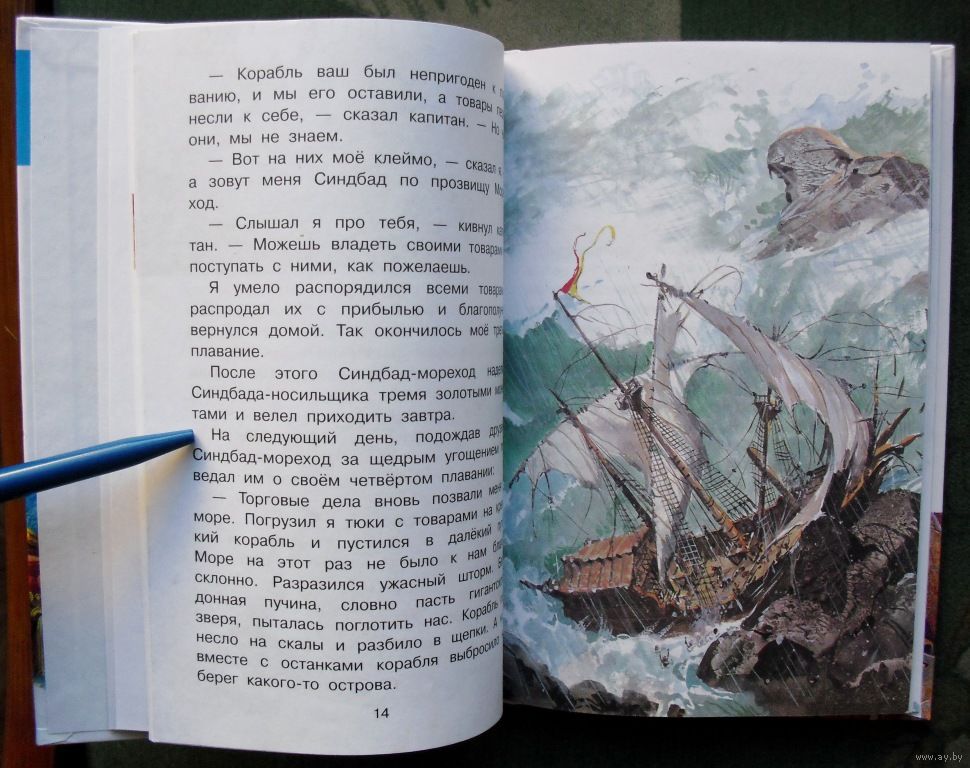 — Корабль ваш был непригоден к
ванию, и мы его оставили, а товары
несли к себе, — сказал капитан. — Но
они, мы не знаем.
— Вот на них моё клеймо, — сказал я,
а зовут меня Синдбад по прозвищу
ход.
— Слышал я про тебя, — кивнул
тан. — Можешь владеть своими
поступать с ними, как пожелаешь.
Я умело распорядился всеми
распродал их с прибылью и
вернулся домой. Так окончилось моё
плавание.
После этого Синдбад-мореход
Синдбада-носильщика тремя золотыми
тами и велел приходить завтра.
На следующий день, подождав
Синдбад-мореход за щедрым угощением
ведал им о своём четвёртом плавании:
— Торговые дела вновь позвали меня
море. Погрузил я тюки с товарами на
кий корабль и пустился в далёкий
Море на этот раз не было к нам
склонно. Разразился ужасный шторм.
донная пучина, словно пасть
зверя, пыталась поглотить нас. Корабль
несло на скалы и разбило в щепки. А
вместе с останками корабля выбросило
берег какого-то острова.
14
www.ay.by